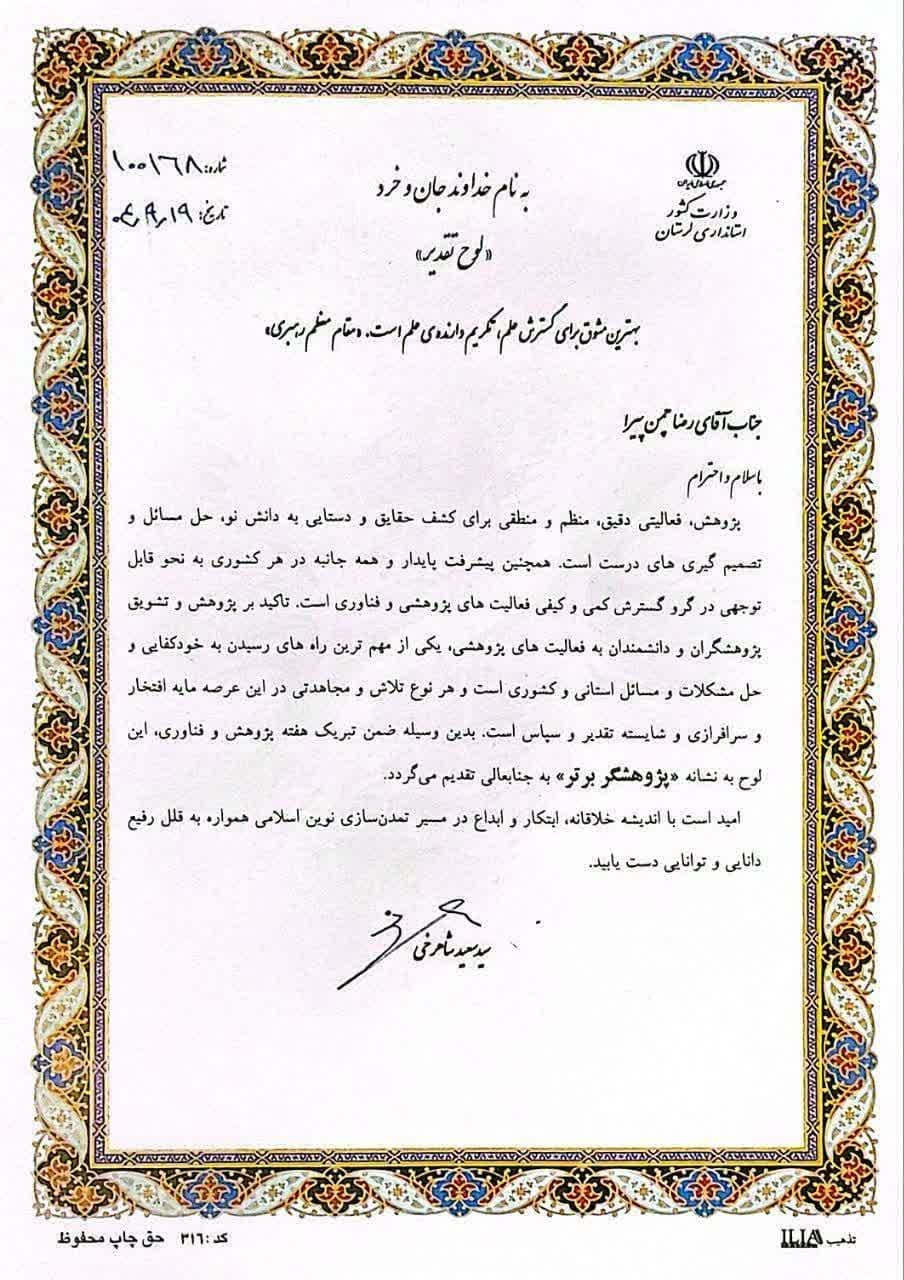 جمهوری اسلامی ایران
وزارت کشور
استانداری لرستان
شماره: ۱۰۰۱۶۸
تاریخ: ۰۴٫۹٫۱۹
به نام خداوند جان و خرد
«لوح تقدیر»
بهترین مشوق برای گسترش علم، تکریم دارنده‌ی علم است. «مقام معظم رهبری»
جناب آقای رضا چمن پیرا
با سلام و احترام
پژوهش، فعالیتی دقیق، منظم و منطقی برای کشف حقایق و دستایی به دانش نو، حل مسائل و
تصمیم گیری های درست است. همچنین پیشرفت پایدار و همه جانبه در هر کشوری به نحو قابل
توجهی در گرو گسترش کمی و کیفی فعالیت های پژوهشی و فناوری است. تاکید بر پژوهش و تشویق
پژوهشگران و دانشمندان به فعالیت های پژوهشی، یکی از مهم ترین راه های رسیدن به خودکفایی و
حل مشکلات و مسائل استانی و کشوری است و هر نوع تلاش و مجاهدتی در این عرصه مایه افتخار
و سرافرازی و شایسته تقدیر و سپاس است. بدین وسیله ضمن تبریک هفته پژوهش و فناوری، این
لوح به نشانه «پژوهشگر برتر» به جنابعالی تقدیم می‌گردد.
امید است با اندیشه خلاقانه، ابتکار و ابداع در مسیر تمدن‌سازی نوین اسلامی همواره به قلل رفیع
دانایی و توانایی دست یابید.
سید سعید شاهرخی
تذهیب ILIA
کد : ۳۱۶ حق چاپ محفوظ